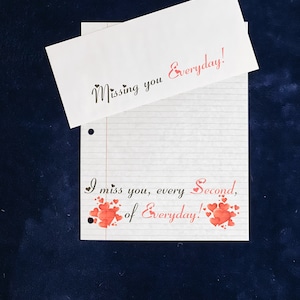 Missing you Everyday!
I miss you, every Second,
of Everyday!